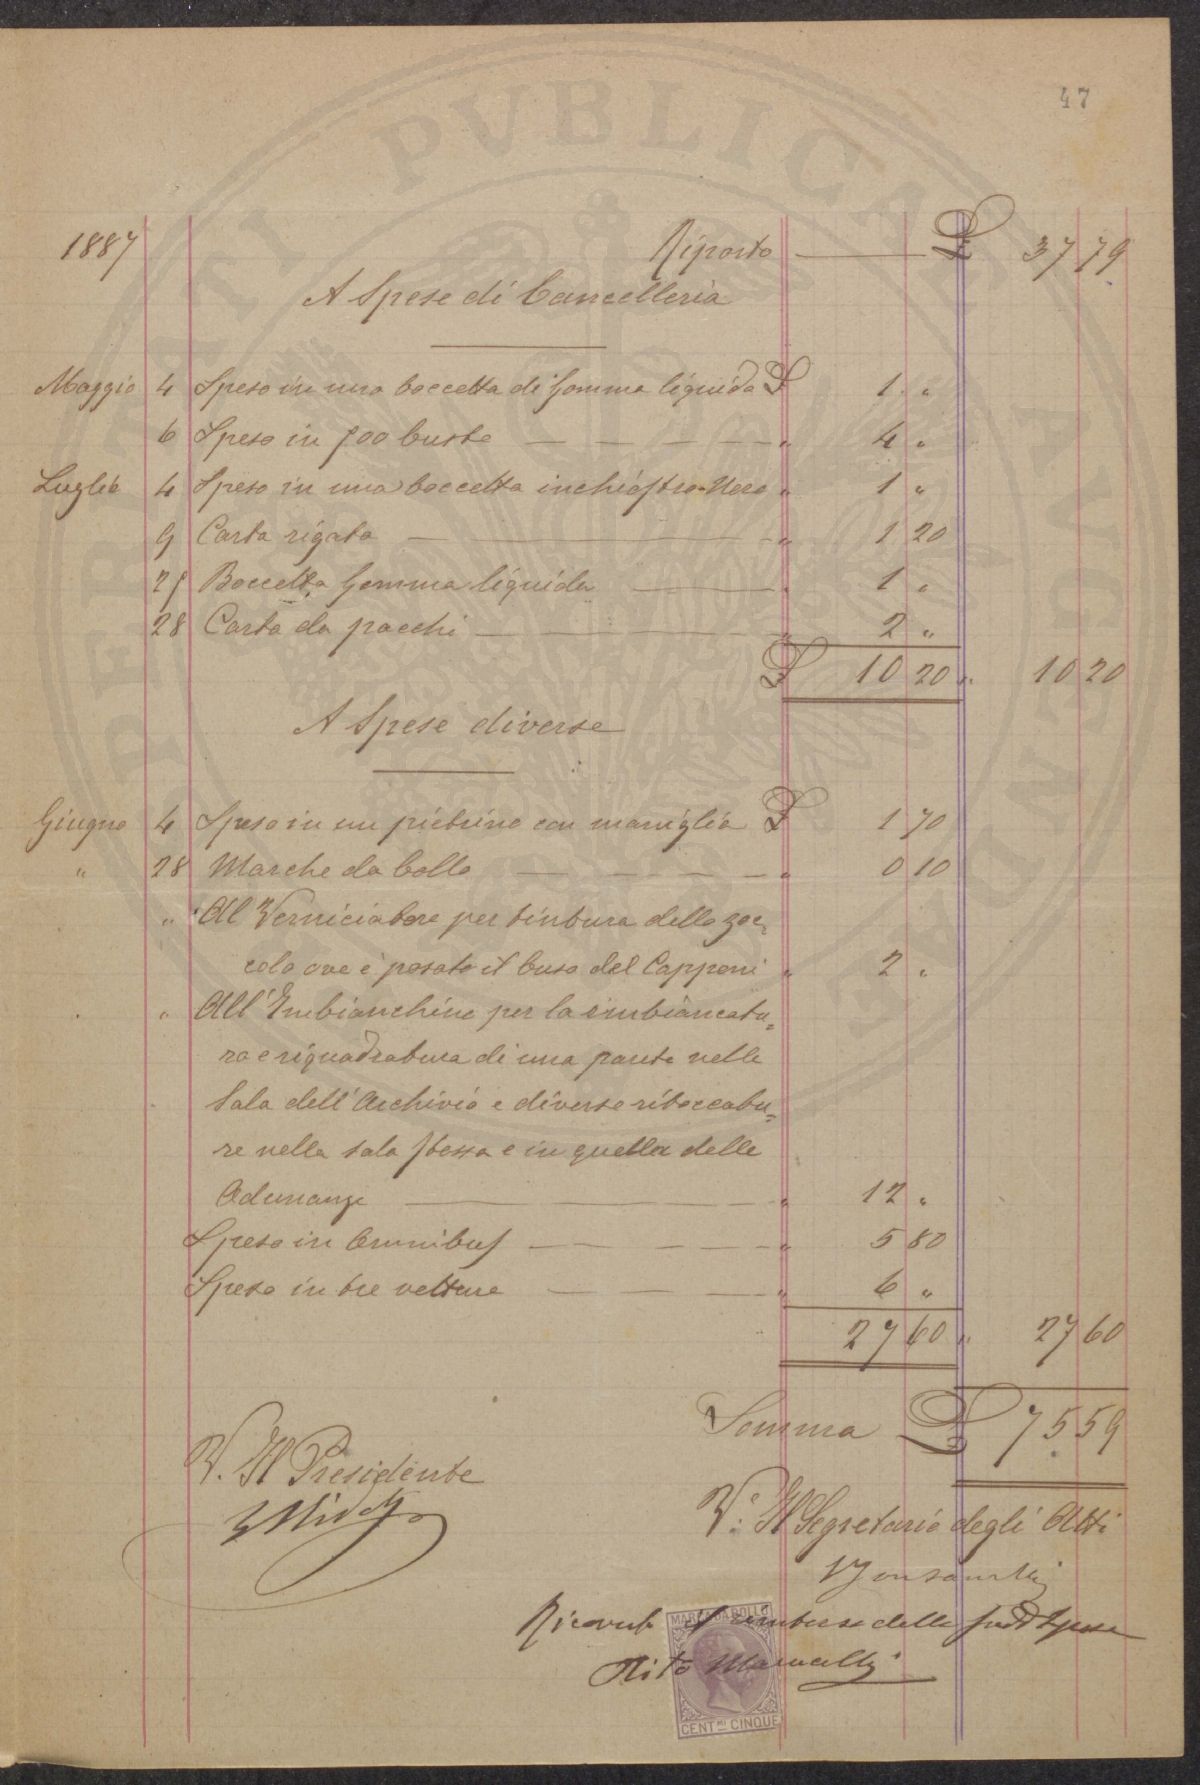 47
1887 Riporto £ 37 79
A Spese di Cancelleria
Maggio 4 Speso in una boccetta di Gomma liquida £ 1 "
6 Speso in 500 buste " 4 "
Luglio 4 Speso in una boccetta inchiostro Nero " 1 "
9 Carta rigata " 1 20
25 Boccetta Gomma liquida " 1 "
28 Carta da pacchi " 2 "
£ 10 20 " 10 20
A Spese diverse
Giugno 4 Speso in un pietrino con maniglia £ 1 70
" 28 Marche da bollo " 0 10
" Al Verniciatore per tintura dello zoc=
colo ove è posato il busto del Capponi " 2 "
" All'Imbianchino per la imbiancatu=
ra e riquadratura di una parete nella
Sala dell'Archivio e diverse ritoccatu=
re nella sala stessa e in quella delle
Adunanze " 12 "
Speso in Omnibus " 5 80
Speso in tre vetture " 6 "
27 60 " 27 60
Somma £ 75 59
V. Il Presidente
V.° Il Segretario degli Atti
Ricevuto il rimborso delle sudd Spese
MARCA DA BOLLO
CENT.MI CINQUE
PVBLICAE